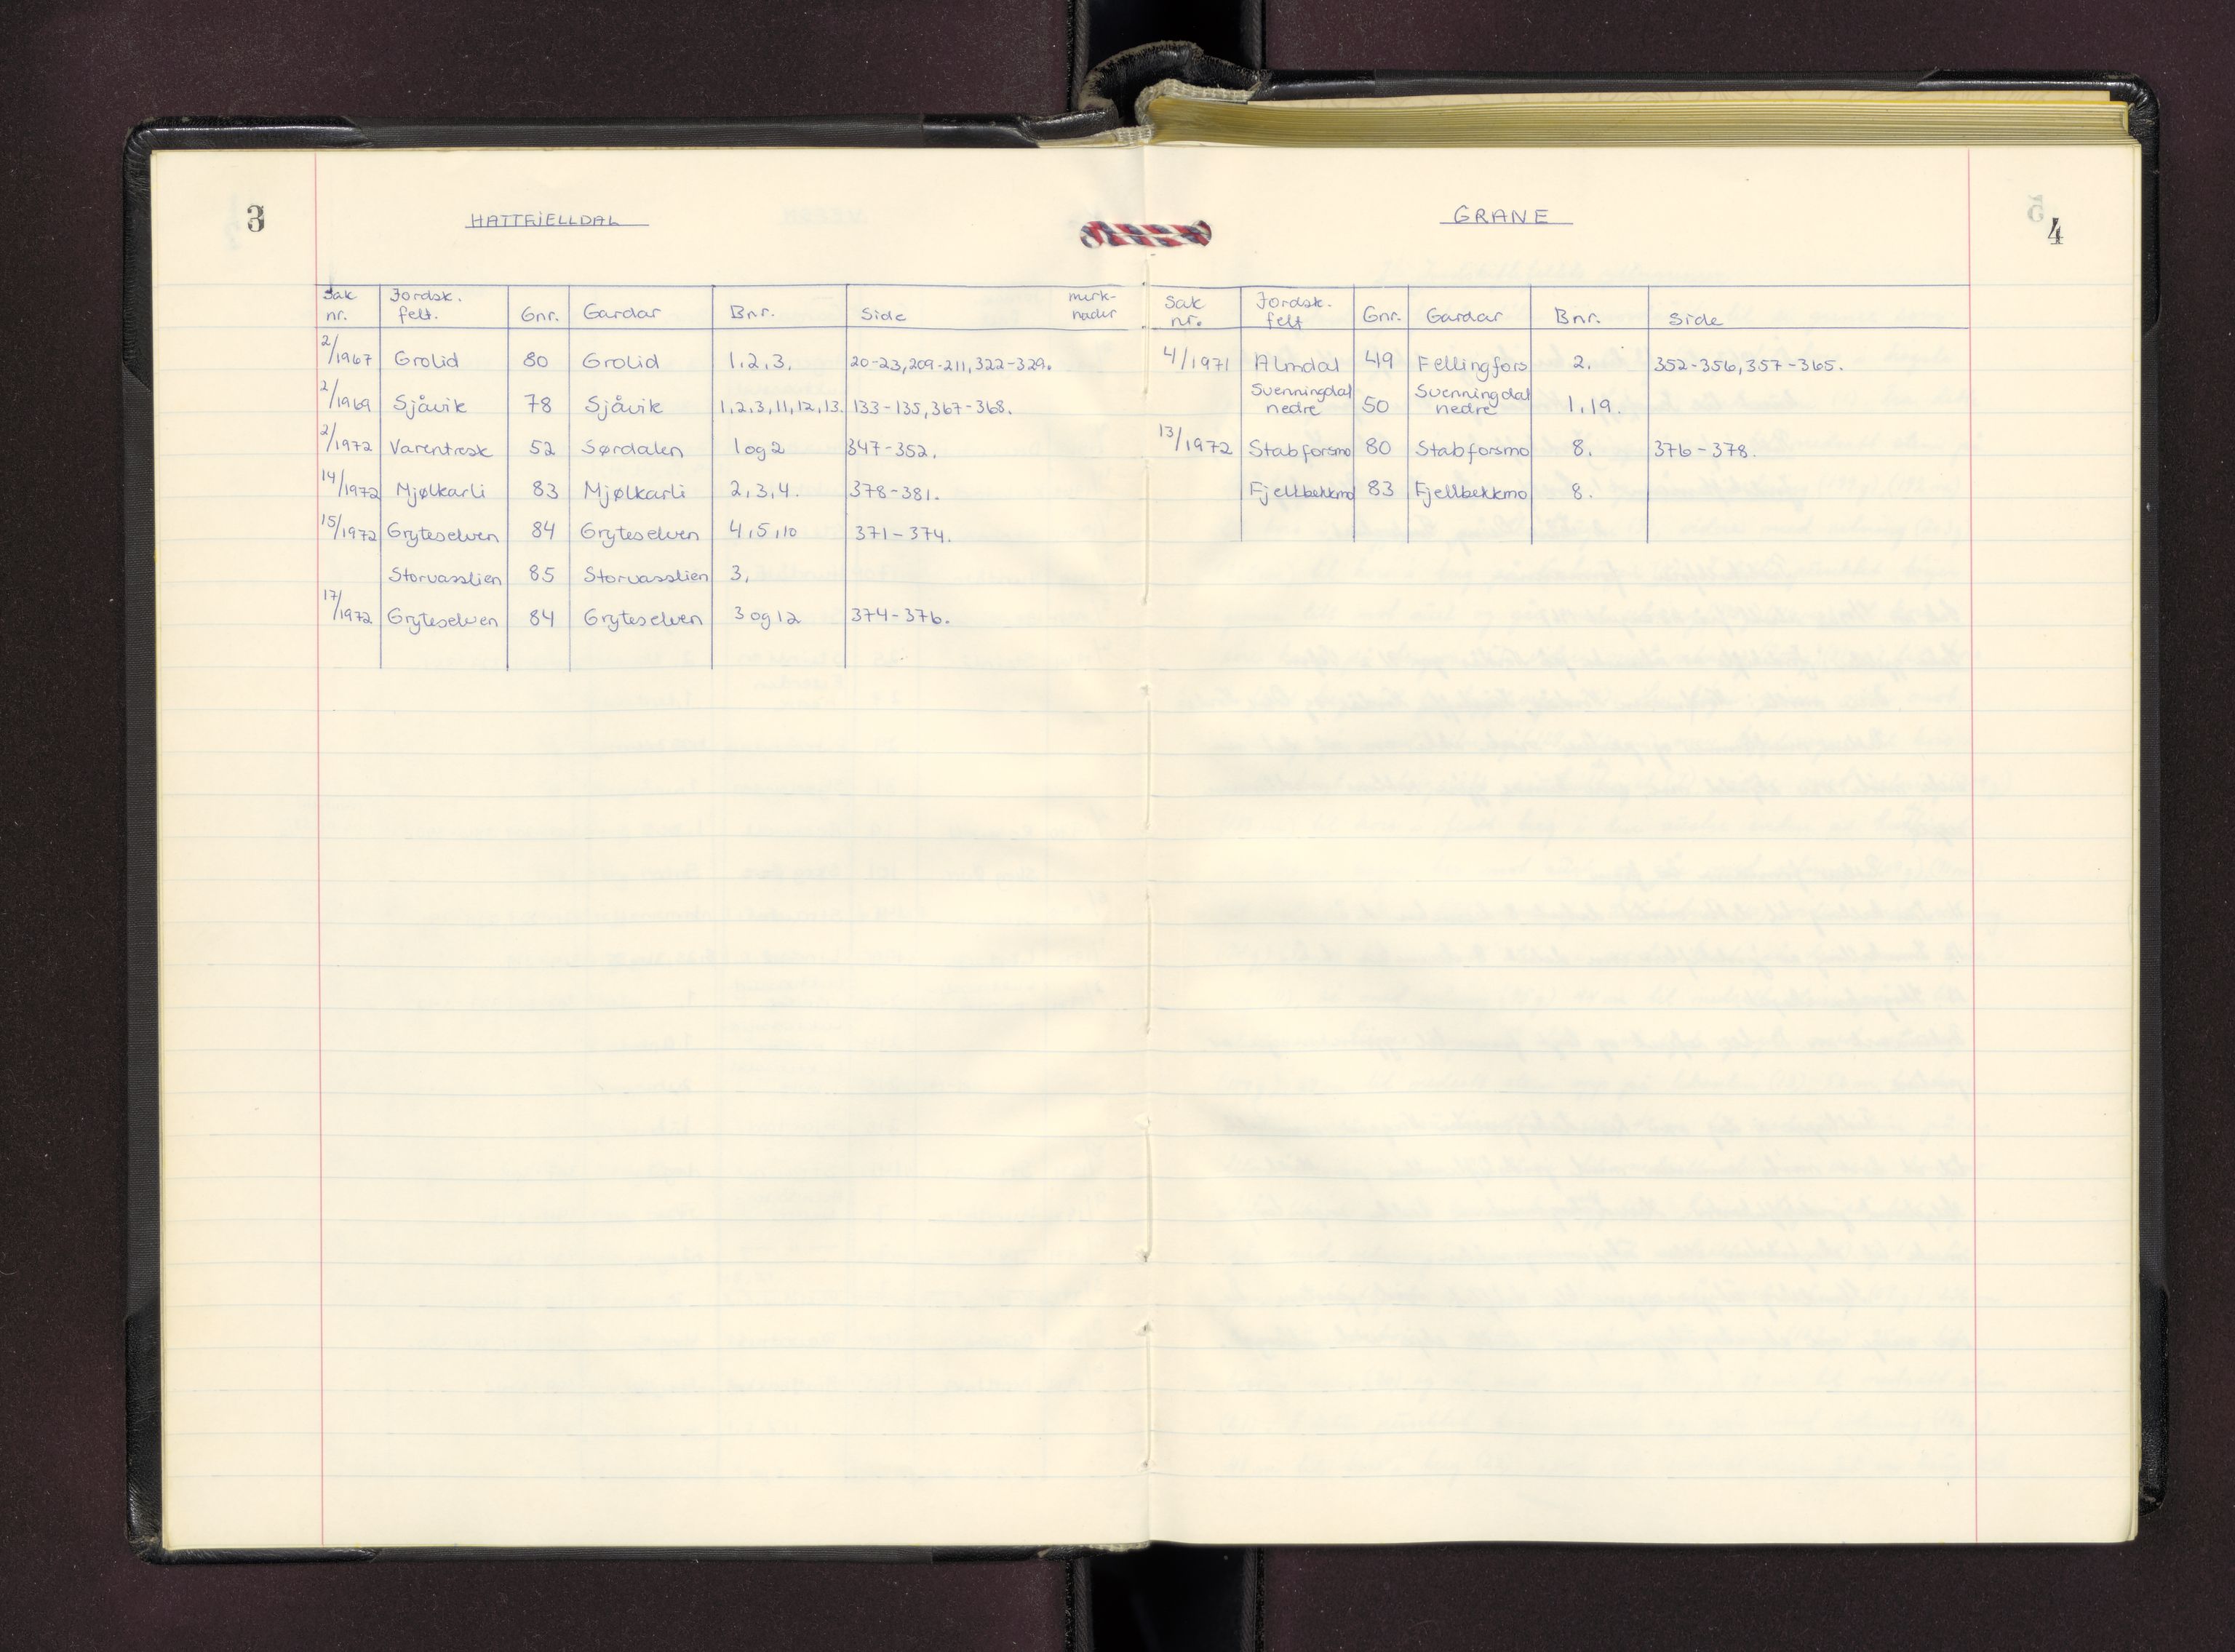 3
HATTFJELLDAL
Sak nr. Jordsk. felt. Gnr. Gardar Bnr. Side merk-nader
2/1967 Grolid 80 Grolid 1,2,3. 20-23,209-211,322-329.
2/1969 Sjåvik 78 Sjåvik 1,2,3,11,12,13. 133-135,367-368.
2/1972 Varentresk 52 Sørdalen 1 og 2 347-352.
14/1972 Mjølkarli 83 Mjølkarli 2,3,4. 378-381.
15/1972 Gryteselven 84 Gryteselven 4,5,10 371-374.
Storvasslien 85 Storvasslien 3,
17/1972 Gryteselven 84 Gryteselven 3 og 12 374-376.
4
GRANE
Sak nr. Jordsk. felt Gnr. Gardar Bnr. Side
4/1971 Almdal 49 Fellingfors 2. 352-356,357-365.
Svenningdal nedre 50 Svenningdal nedre 1,19.
13/1972 Stabforsmo 80 Stabforsmo 8. 376-378.
Fjellbekkmo 83 Fjellbekkmo 8.